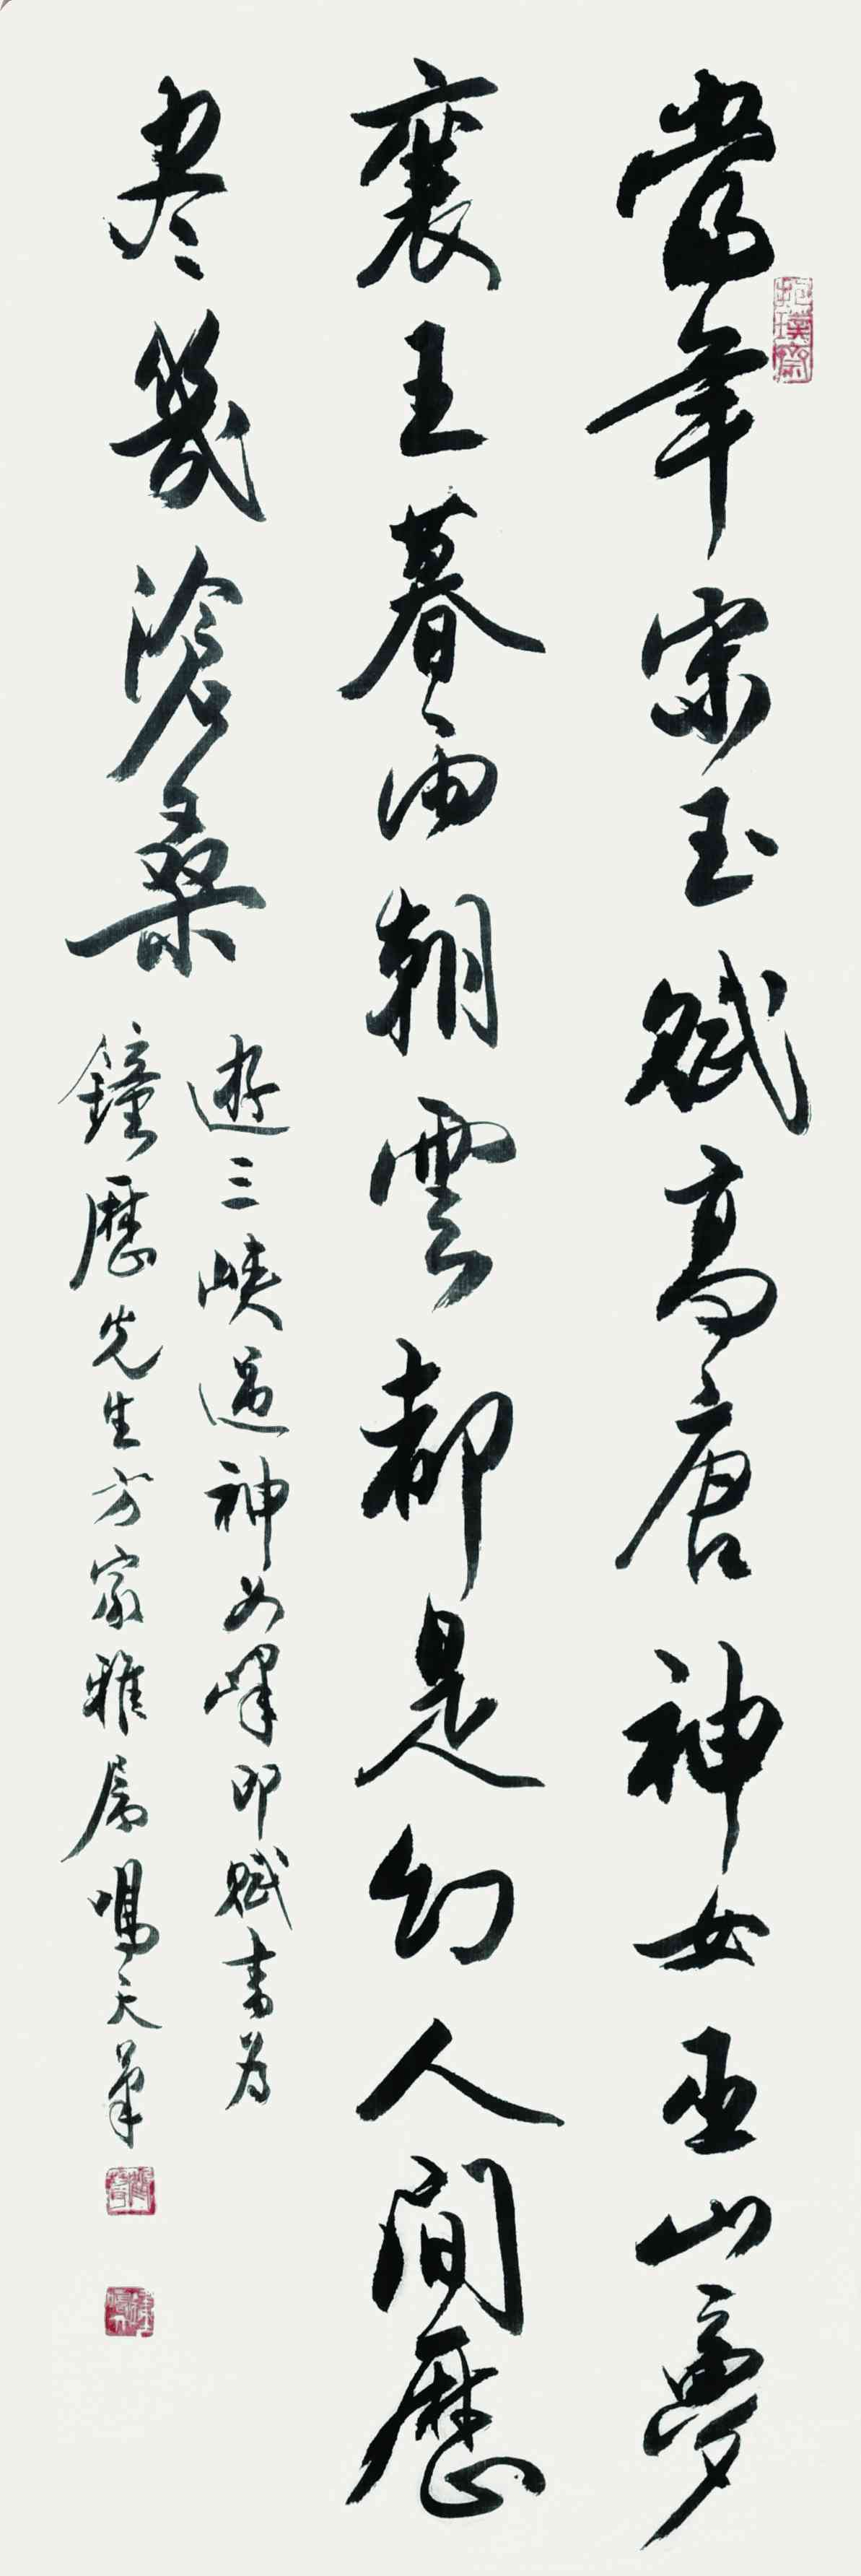 當年宋玉賦高唐神女巫山夢
襄王暮雨朝雲都是幻人間歷
尽幾滄桑
遊三峽過神女峰即賦書為
鐘歷先生方家雅屬鳴天筆
抱璞齋